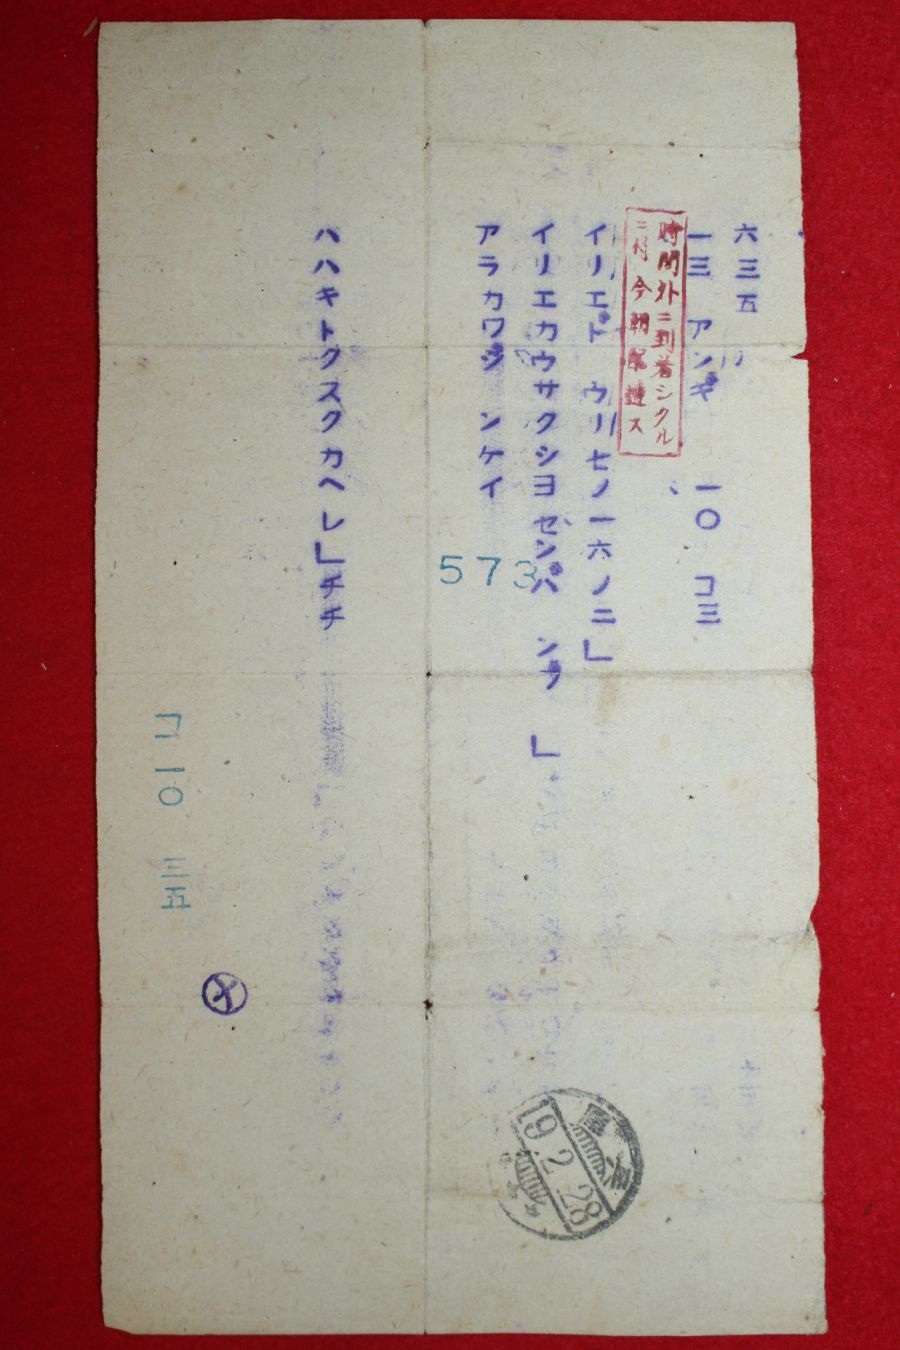 六三五
一三 アンキ゛ 一〇 コ三
時間外ニ到着シタル
ニ付今朝配達ス
イリエト゛ ウリ七ノ一六ノ二」
イリエカウサクシヨ セ゛ンハ゜ ンフ゛ 」
アラカワシ゛ ンケイ
573
ハハキトクスクカヘレ」チチ
コ 一〇 三五
19.2.28